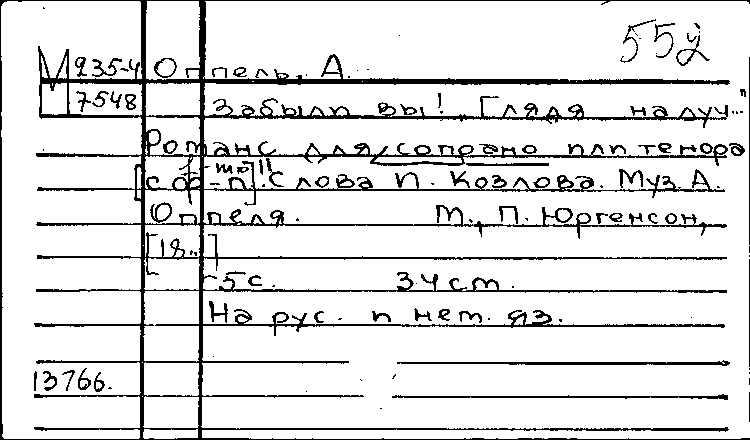 552
М 235-4 Оппель, А.
7548 Забыли вы! „Глядя на луч..."
Романс для сопрано или тенора
[с ф-п]." Слова П. Козлова. Муз. А.
Оппеля. М., П. Юргенсон,
[18..]
5 с. 34 cm.
На рус. и нем. яз.
13766.